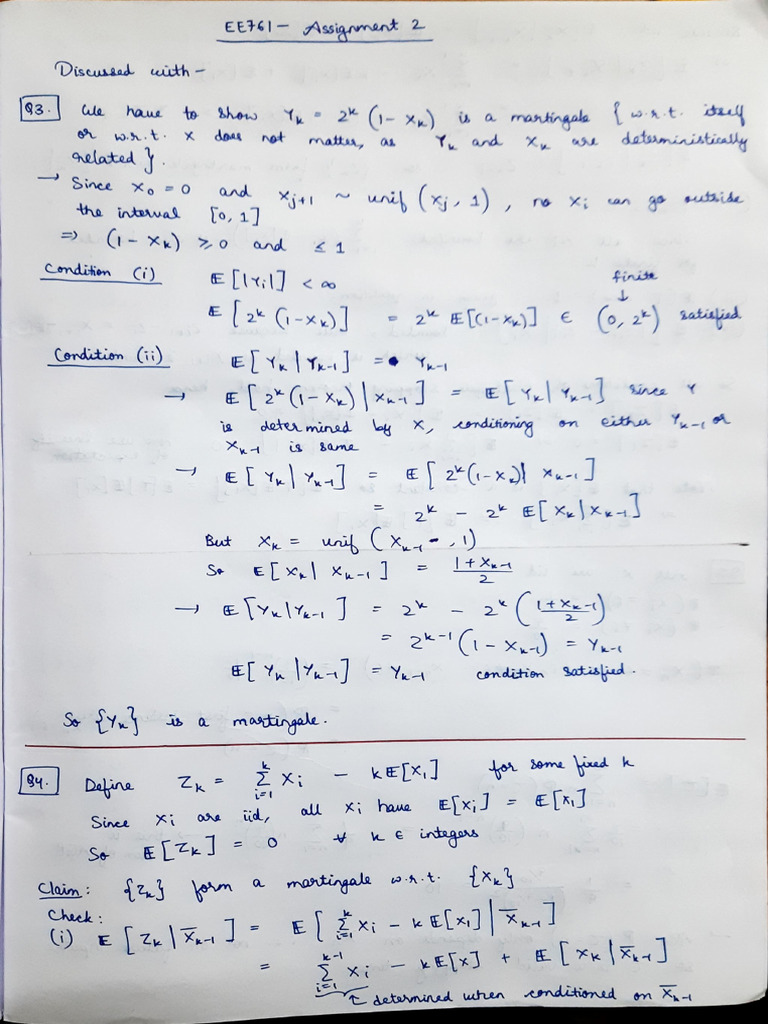 EE761 - Assignment 2
Discussed with -
Q3. We have to show Y_k = 2^k (1 - X_k) is a martingale { w.r.t. itself
or w.r.t. X does not matter, as Y_k and X_k are deterministically
related }.
→ Since X_0 = 0 and X_{j+1} ~ unif (X_j, 1), no X_i can go outside
the interval [0, 1]
⇒ (1 - X_k) ≥ 0 and ≤ 1
Condition (i) E[|Y_i|] < ∞
finite
↓
E[2^k (1 - X_k)] = 2^k E[(1 - X_k)] ∈ (0, 2^k) satisfied
Condition (ii) E[Y_k | Y_{k-1}] = Y_{k-1}
→ E[2^k (1 - X_k) | X_{k-1}] = E[Y_k | Y_{k-1}] since Y
is determined by X, conditioning on either Y_{k-1} or
X_{k-1} is same
→ E[Y_k | Y_{k-1}] = E[2^k (1 - X_k) | X_{k-1}]
= 2^k - 2^k E[X_k | X_{k-1}]
But X_k = unif (X_{k-1}, 1)
So E[X_k | X_{k-1}] = (1 + X_{k-1})/2
→ E[Y_k | Y_{k-1}] = 2^k - 2^k ((1 + X_{k-1})/2)
= 2^{k-1} (1 - X_{k-1}) = Y_{k-1}
E[Y_k | Y_{k-1}] = Y_{k-1} condition satisfied.
So {Y_k} is a martingale.
Q4. Define Z_k = Σ_{i=1}^{k} X_i - k E[X_1] for some fixed k
Since X_i are iid, all X_i have E[X_i] = E[X_1]
So E[Z_k] = 0 ∀ k ∈ integers
Claim: {Z_k} form a martingale w.r.t. {X_k}
Check:
(i) E[Z_k | X̅_{k-1}] = E[Σ_{i=1}^{k} X_i - k E[X_1] | X̅_{k-1}]
= Σ_{i=1}^{k-1} X_i - k E[X] + E[X_k | X̅_{k-1}]
↑ determined when conditioned on X̅_{k-1}